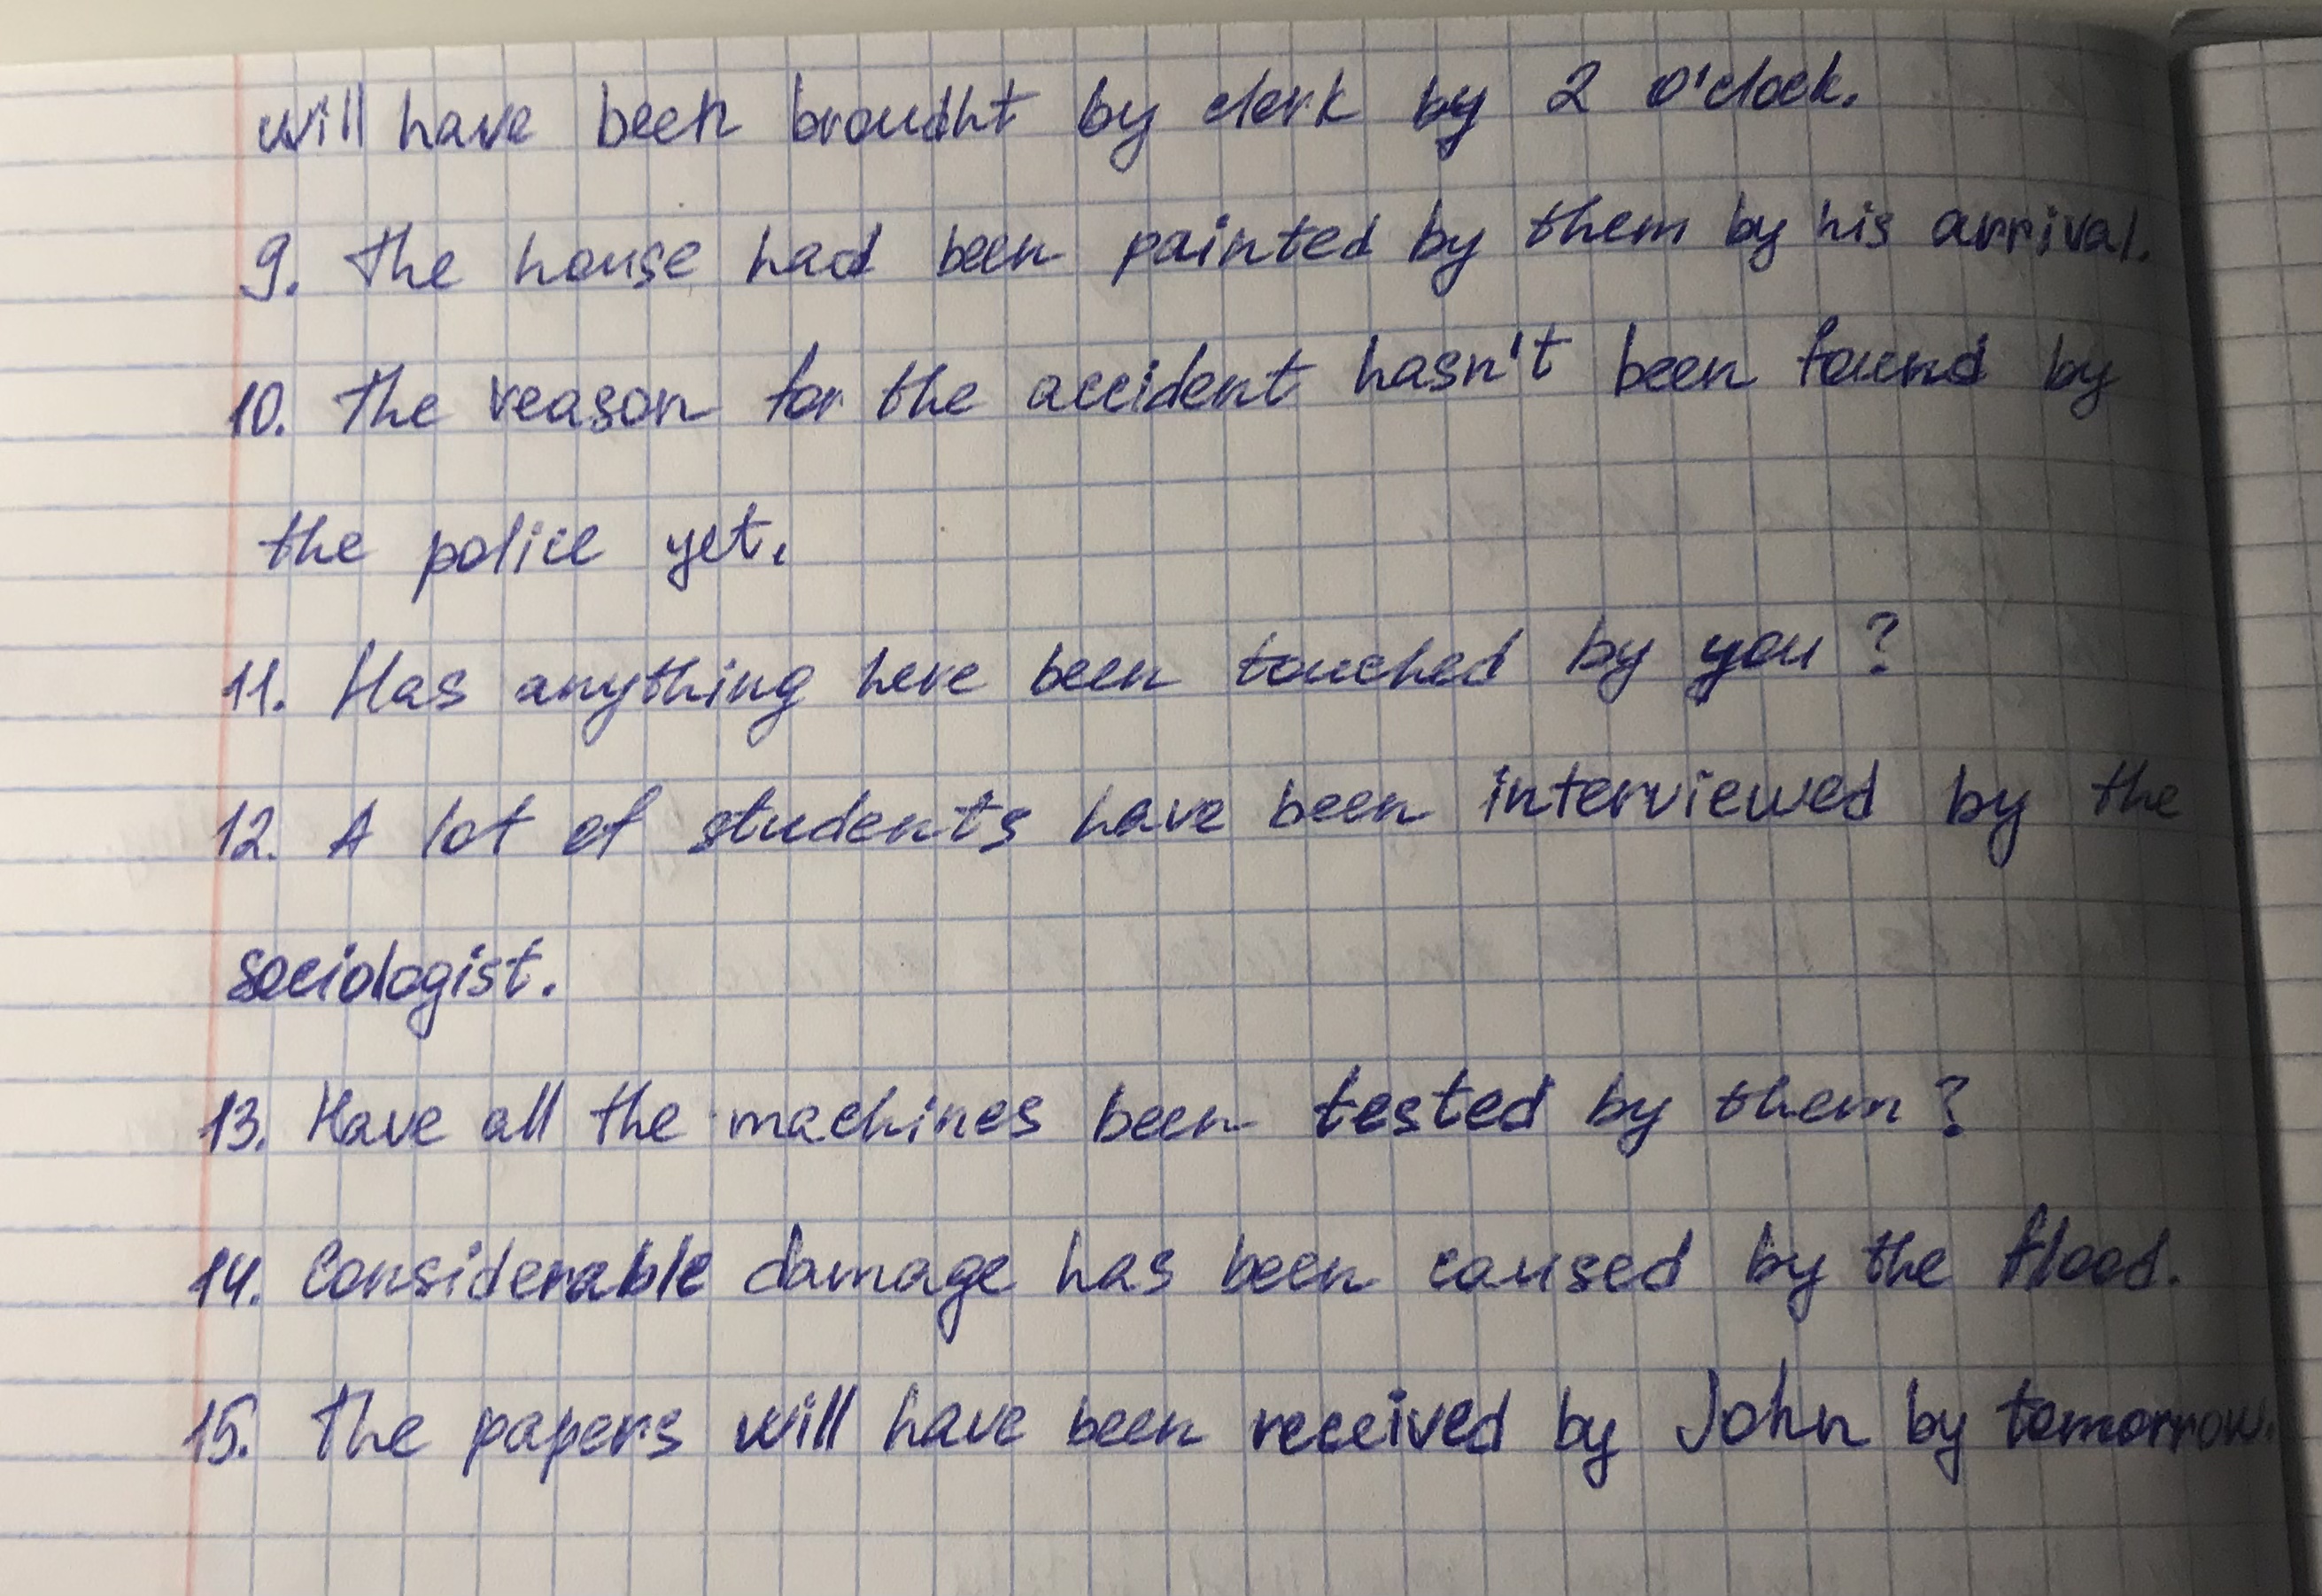 will have been broudht by clerk by 2 o'clock.
9. The house had been painted by them by his arrival.
10. The reason for the accident hasn't been found by
the police yet.
11. Has anything here been touched by you?
12. A lot of students have been interviewed by the
sociologist.
13. Have all the machines been tested by them?
14. Considerable damage has been caused by the flood.
15. The papers will have been received by John by tomorrow.